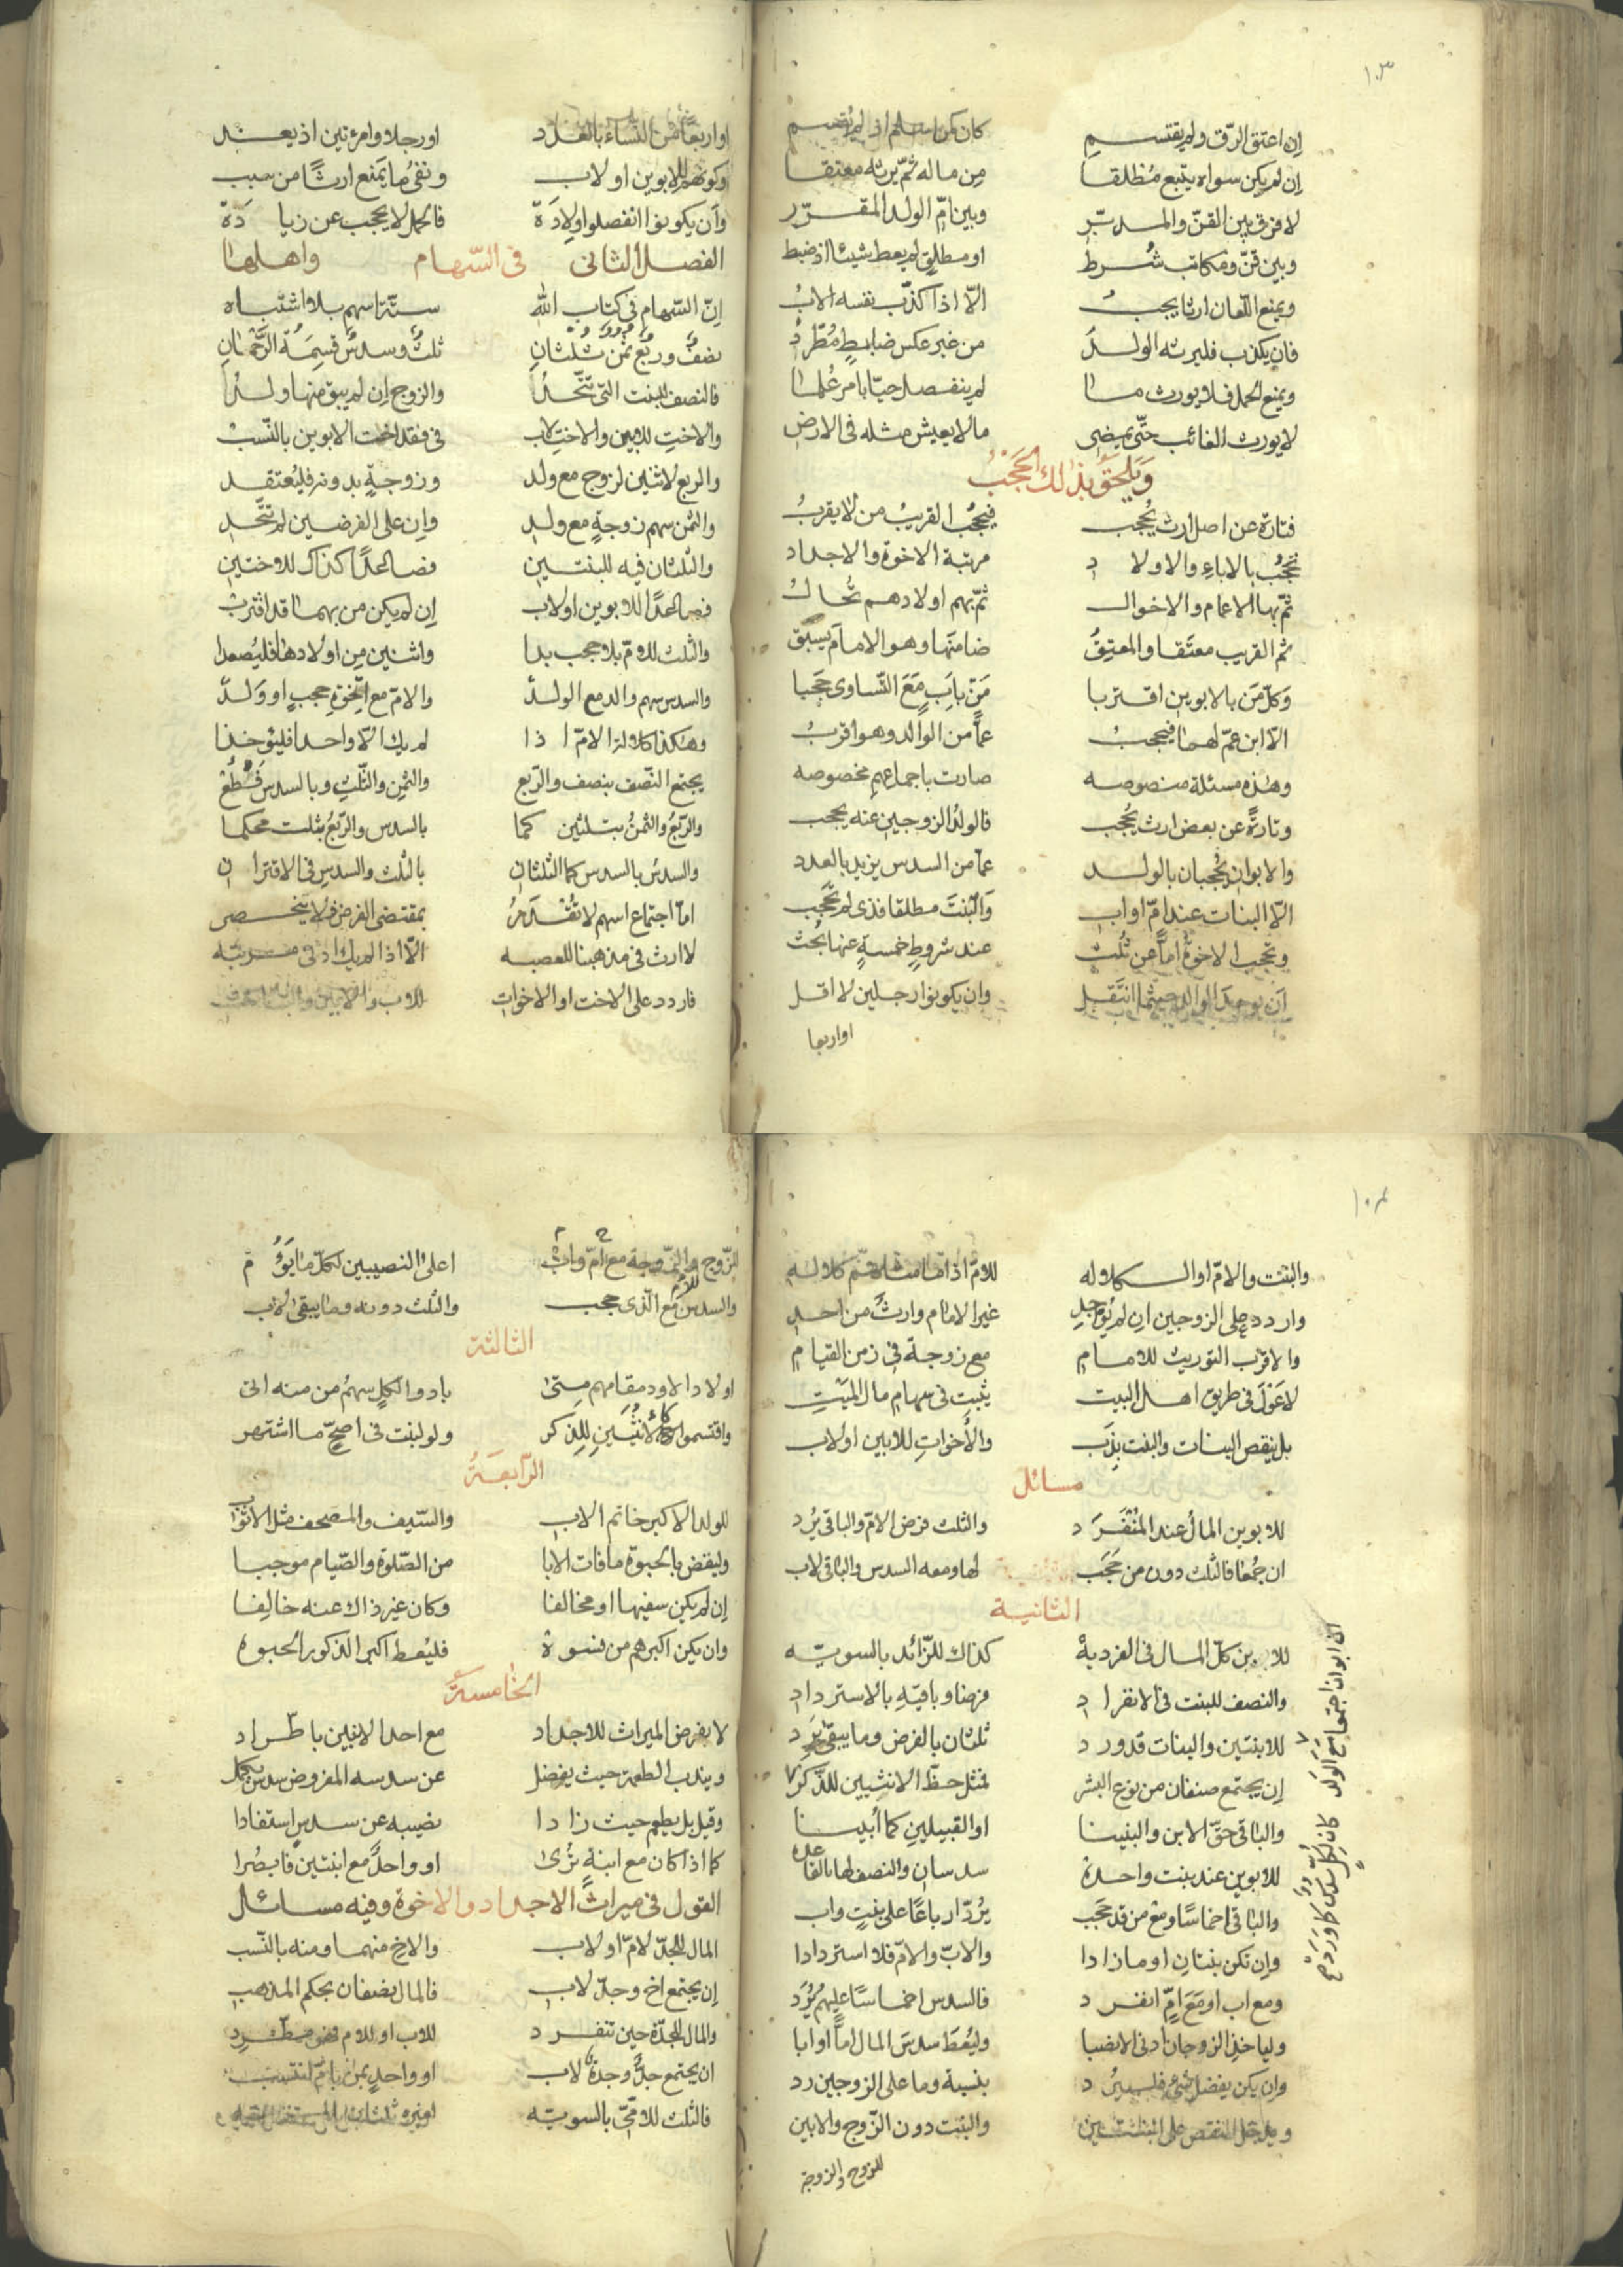 ١٠٣
إن اعتق الرق ولم يقتسم كان كمن اسلم اذ لم يقتسم
إن لم يكن سواه يتبع مطلقا من ماله ثم يرثه معتقا
لا فرق بين القن والمدبر وبين ام الولد المقرر
وبين قن ومكاتب شرط او مطلق لم يعط شيئا اذ ضبط
ويمنع اللعان ارثا يجب الا اذا كذب نفسه الاب
فان يكذب فليرثه الولد من غير عكس ضابط مطرد
ويمنع الحمل فلا يورث ما لم ينفصل حيا بامر علما
لا يورث الغائب حتى يمضى ما لا يعيش مثله فى الارض
ويلحق بذلك الحجب
فتارة عن اصل ارث يحجب فيحجب القريب من لا يقرب
تحجب بالاباء والاولاد مرتبة الاخوة والاجداد
ثم بها الاعمام والاخوال ثم بهم اولادهم تحال
ثم القريب معتقا والمعتق ضامنها وهو الامام يسبق
وكل من بالابوين اقتربا من باب مع التساوى حجبا
الا ابن عم لهما فيحجب عما من الوالد وهو اقرب
وهذه مسئلة منصوصه صارت باجماعهم مخصوصه
وتارة عن بعض ارث يحجب فالولد الزوجين عنه يحجب
والابوان يحجبان بالولد عما من السدس يزيد بالعدد
الا البنات عند ام او اب والبنت مطلقا فذى لم تحجب
وتحجب الاخوة اما عن ثلث عند شروط خمسة عنها بحث
ان يوجد الوالد حيثما انتقل وان يكونوا رجلين لا اقل
او اربعا
او اربعا من النساء بالعدد او رجلا وامرئتين اذ يعد
وكونهم للابوين او لاب ونفى ما يمنع ارثا من سبب
وان يكونوا انفصلوا ولادة فالحمل لا يحجب عن زيادة
الفصل الثانى فى السهام واهلها
ان السهام فى كتاب الله ستة اسهم بلا اشتباه
نصف وربع ثمن ثلثان ثلث وسدس قسمة الرحمان
فالنصف للبنت التى تتحد والزوج ان لم يبق منها ولد
والاخت للابين والاخت لاب فى فقد اخت الابوين بالنسب
والربع لاثنين لزوج مع ولد وزوجة بدونه فليعتقد
والثمن سهم زوجة مع ولد وان على الفرضين لم تتحد
والثلثان فيه للبنتين فصاعدا كذاك للاختين
فصاعدا للابوين او لاب ان لم يكن من بهما قد اقترب
والثلث للام بلا حجب بدا واثنين من اولادها فليصعدا
والسدس سهم والد مع الولد والام مع اخوة حجب او ولد
وهكذا كلالة الام اذا لم يك الا واحدا فليؤخذا
يجتمع النصف بنصف والربع والثمن والثلث وبالسدس قطع
والربع والثمن بثلثين كما بالسدس والربع بثلث محكما
والسدس بالسدس كما الثلثان بالثلث والسدس فى الاقتران
اما اجتماع اسهم لا تقدر بمقتضى الفرض فلا ينحصر
لا ارث فى مذهبنا للعصبه الا اذا لم يك ادنى مرتبه
فاردد على الاخت او الاخوات للاب
١٠٤
والبنت والام او الكلاله للام اذ ثم كلاله
واردد على الزوجين ان لم يوجد غير الامام وارث من احد
والاقرب التوريث للامام مع زوجة فى زمن القيام
لا عول فى طريق اهل البيت يثبت فى سهام مال الميت
بل ينقص البنات والبنت بذب والاخوات للابين او لاب
مسائل
للابوين المال عند المنفرد والثلث فرض الام والباقى يرد
ان جمعا فالثلث دون من حجب لها ومعه السدس والباقى لاب
الثانية
للابن كل المال فى الفردية كذاك للزائد بالسويه
والنصف للبنت فى الانفراد فرضا وباقيه بالاسترداد
للابنتين والبنات قد ورد ثلثان بالفرض وما يبقى يرد
إن يجتمع صنفان من نوع البشر فمثل حظ الانثيين للذكر
ان ابوان اجتمعا مع الولد كان لكل سدس كما ورد صح
والباقى حق الابن والبنينا او القبيلين كما أبينا
للابوين عند بنت واحدة سدسان والنصف لها بالفاعده
والباقى اخماسا ومع من قد حجب يرد ارباعا على بنت واب
وإن تكن بنتان او ما زادا والاب والام فلا استردادا
ومع اب او مع ام انفرد فالسدس اخماسا عليهم يرد
ولياخذ الزوجان ادنى الانصبا وليعط سدس المال اما او ابا
وان يكن يفضل شئ فليرد بنسبة وما على الزوجين رد
ويدخل النقص على البنتين والبنت دون الزوج والابين
للزوج والزوجة
للزوج والزوجة مع ام واب اعلى النصيبين لكل ما يؤم
والسدس للام مع الذى حجب والثلث دونه وما يبقى لاب
الثالثة
اولاد الاولاد مقامهم متى بادوا لكل سهم من منه اتى
واقتسموا كالانثيين للذكر ولو لبنت فى اصح ما اشتهر
الرابعة
للولد الاكبر خاتم الاب والسيف والمصحف مثل الاثواب
وليقض بالحبوة ما فات الابا من الصلوة والصيام موجبا
إن لم يكن سفيها او مخالفا وكان غير ذاك عنه خالفا
وان يكن اكبرهم من نسوة فليعط اكبر الذكور الحبوة
الخامسة
لا يفرض الميراث للاجداد مع احد الابين باطراد
ويندب الطعمة حيث يفضل عن سدسه المفروض سدس يكمل
وقيل بل يطعم حيث زادا نصيبه عن سدس استفادا
كما اذا كان مع ابنة ترى او واحد مع ابنتين فابصرا
القول فى ميراث الاجداد والاخوة وفيه مسائل
المال للجد لام او لاب والاخ منهما ومنه بالنسب
إن يجتمع اخ وجد لاب فالمال نصفان بحكم المذهب
والمال للجدة حين تنفرد للاب او للام فهو مطرد
ان يجتمع جد وجدة لاب او واحد بمن بام
فالثلث للامى بالسويه